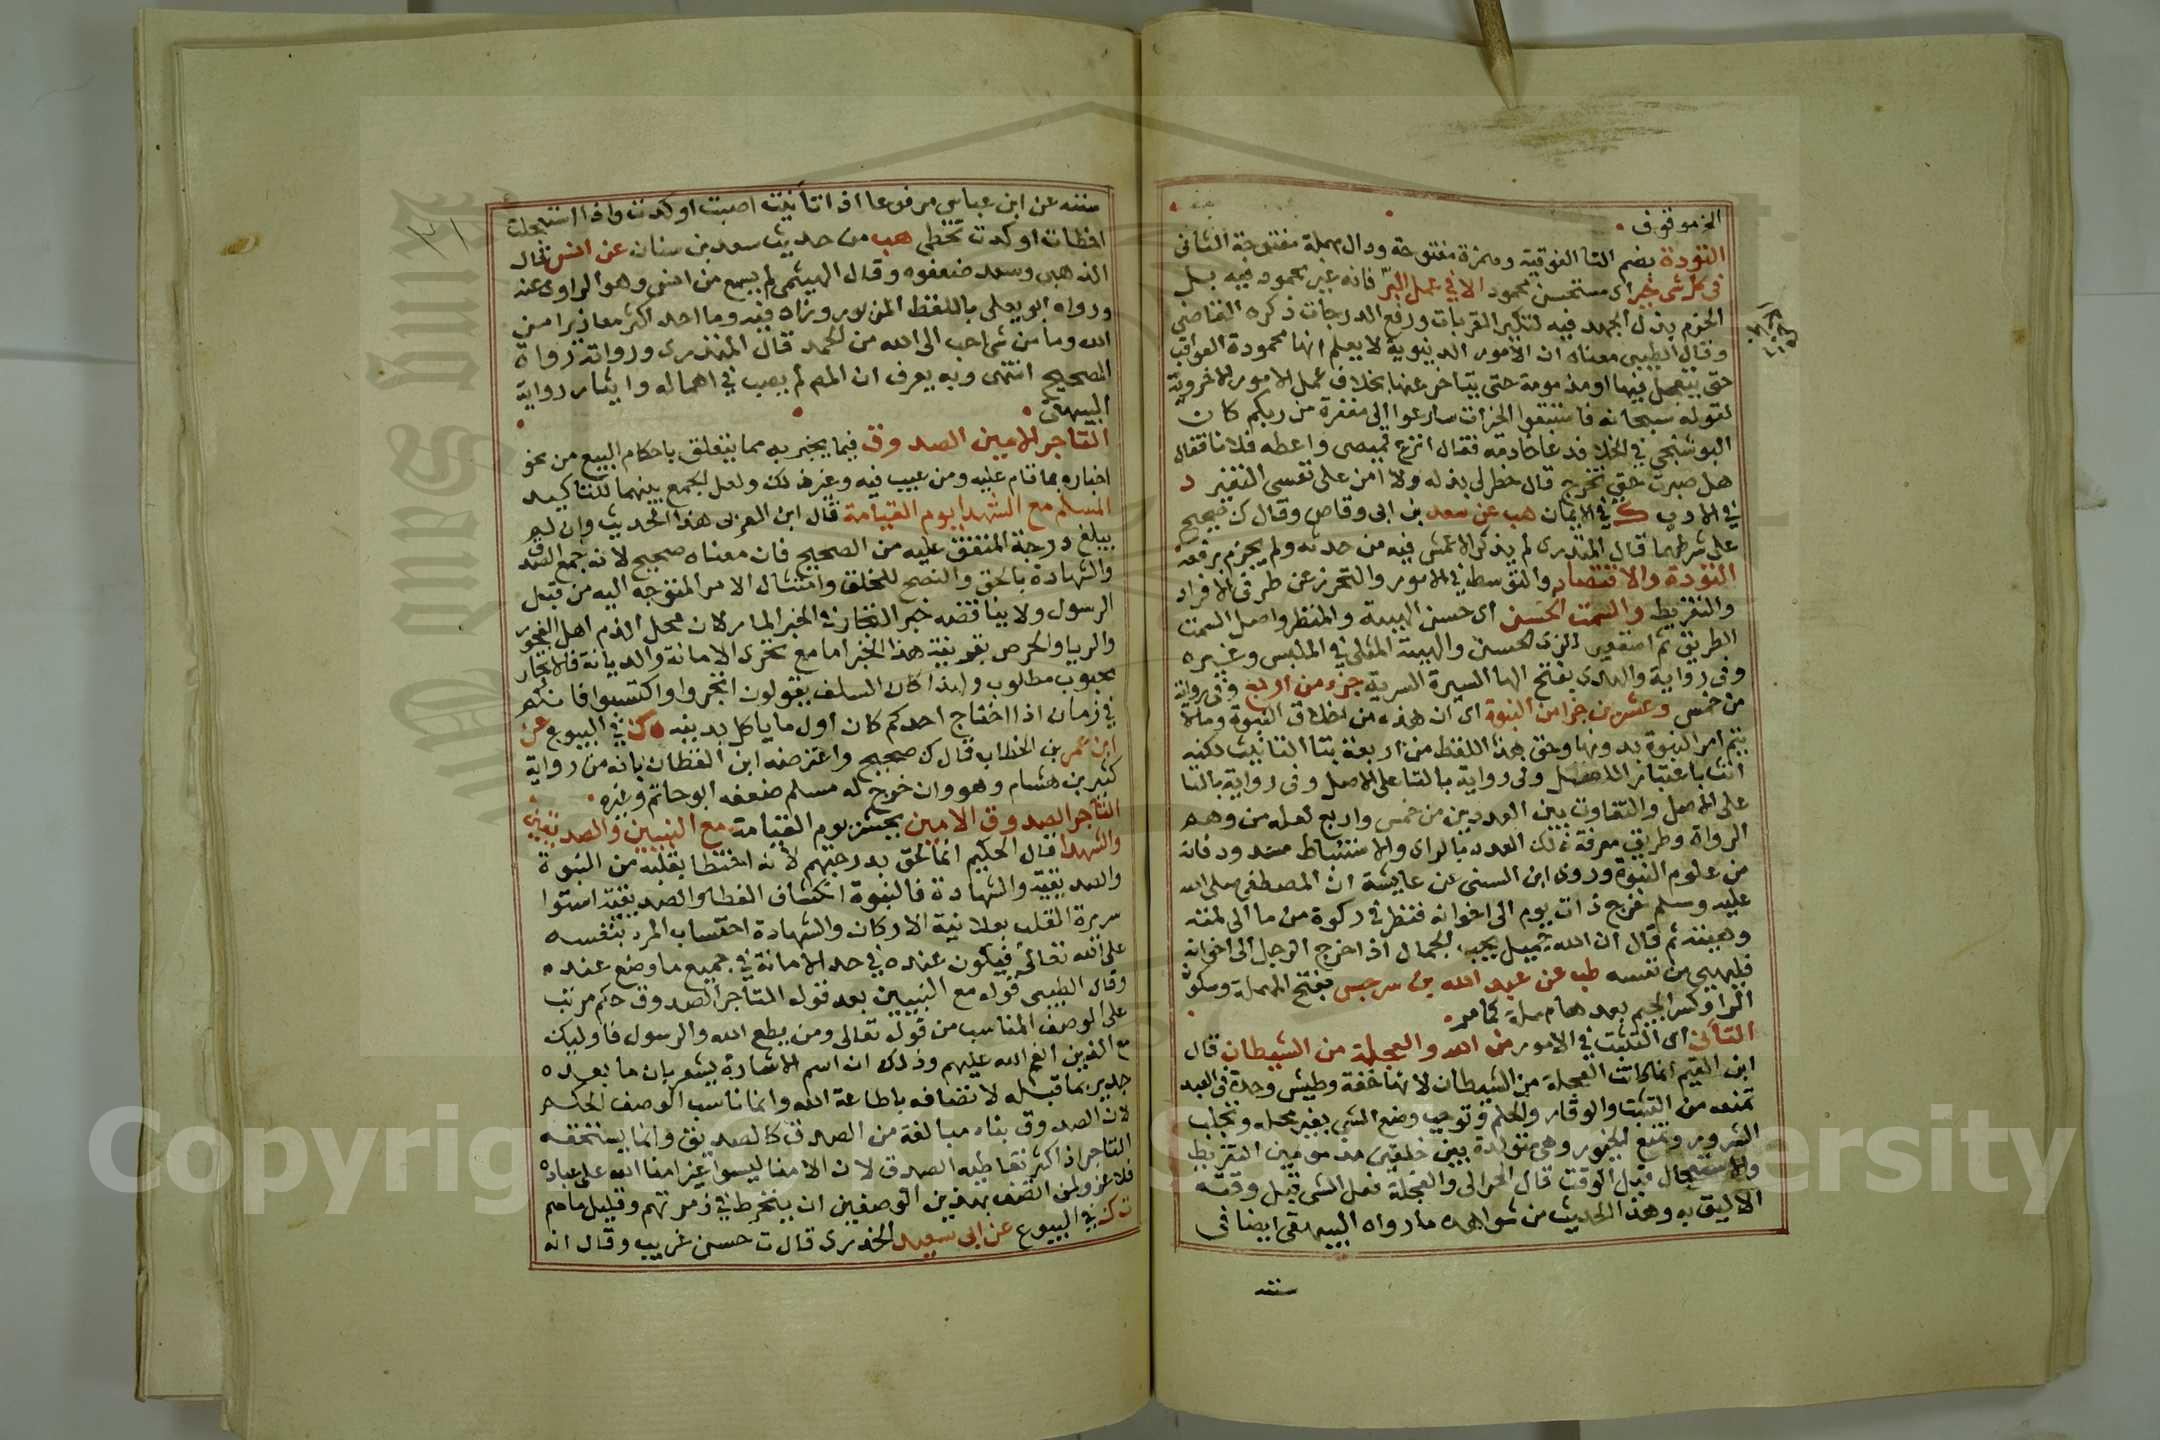 الخ موقوف
التؤدة بضم التا الفوقية وهمزة مفتوحة ودال مهملة مفتوحة التانى
فى كل شى خير اى مستحسن محمود الا فى عمل البر فانه غير محمود فيه بل
الحزم بذل الجهد فيه لتكثير القربات ورفع الدرجات ذكره القاضى
وقال الطيبى معناه ان الأمور الدنيوية لا يعلم انها محمودة العواقب
حتى يتعجل فيها او مذمومة حتى يتاخر عنها بخلاف عمل الامور الاخروية
لقوله سبحانه فاستبقوا الخيرات سارعوا الى مغفرة من ربكم كان
البوشنجى فى الخلا فدعا خادمه فقال انزع قميصى واعطه فلانا فقال
هل صبرت حتى تخرج قال خطر لى بذله ولا امن على نفسى التغير د
فى الادب ك فى الايمان هب عن سعد بن ابى وقاص وقال ك صحيح
على شرطهما قال المنذرى لم يذكر الاعمش فيه من حدثه ولم يجزم برفعه
التؤدة والاقتصاد والتوسط فى الامور والتحرز عن طرفى الافراد
والتفريط والسمت الحسن اى حسن الهيئة والمنظر واصل السمت
الطريق ثم استعير للزى الحسن والهيئة المثلى فى الملبس وغيره
وفى رواية والهدى بفتح الها السيرة السرية جزء من اربع وفى رواية
من خمس وعشرين جزا من النبوة اى ان هذه من اخلاق النبوة ومالا
يتم امر النبوة بدونها وحق هذا اللفظ من اربعة بتا التانيث لكنه
انث باعتبار الخصلة وفى رواية بالتا على الاصل وفى رواية بالتا
على الاصل والتفاوت بين العددين من خمس واربع لعله من وهم
الرواة وطريق معرفة ذلك العدد بالراى والاستنباط مسدود فانه
من علوم النبوة وروى ابن السنى عن عايشة ان المصطفى صلى الله
عليه وسلم خرج ذات يوم الى اخوانه فنظر فى ركوة من ما الى لمته
وهيئته ثم قال ان الله جميل يحب الجمال اذا خرج الرجل الى اخوانه
فليهيى من نفسه طب عن عبد الله بن سرجس بفتح المهملة وسكون
الرا وكسر الجيم بعدها مهملة كما مر
التأنى اى التثبت فى الامور من الله والعجلة من الشيطان قال
ابن القيم انما كانت العجلة من الشيطان لانها خفة وطيش وحدة فى العبد
تمنعه من التثبت والوقار والحلم وتوجب وضع الشى بغير محله وتجلب
الشرور وتمنع الخيور وهى متولدة بين خلقين مذمومين التفريط
والاستعجال قبل الوقت قال الحرالى والعجلة فعل الشى قبل وقته
الاليق به وهذا الحديث من شواهده ما رواه البيهقى ايضا فى
سننه
سننه عن ابن عباس مرفوعا اذا تأنيت اصبت او كدت واذا استعجلت
اخطات او كدت تخطى هب من حديث سعد بن سنان عن انس قال
الذهبى وسعد ضعفوه وقال الهيثمى لم يسمع من انس وهو الراوى عنه
ورواه ابو يعلى باللفظ المزبور وزاد فيه وما احد اكثر معاذير من
الله وما من شى احب الى الله من الحمد قال المنذرى ورواته رواة
الصحيح انتهى وبه يعرف ان المص لم يصب فى اهماله وايثار رواية
البيهقى
التاجر الامين الصدوق فيما يخبر به مما يتعلق باحكام البيع من نحو
اخباره بما قام عليه ومن عيب فيه وغير ذلك ولعل الجمع بينهما للتاكيد
المسلم مع الشهدا يوم القيامة قال ابن العربى هذا الحديث وان لم
يبلغ درجة المتفق عليه من الصحيح فان معناه صحيح لانه جمع الصدق
والشهادة بالحق والنصح للخلق وامتثال الامر المتوجه اليه من قبل
الرسول ولا يناقضه خبر التجار فى الخبر المار لان محل الذم اهل الفجور
والريا والحرص بقرينة هذا الخبر اما مع تحرى الامانة والديانة فالاتجار
محبوب مطلوب ولهذا كان السلف يقولون اتجروا واكتسبوا فانكم
فى زمان اذا احتاج احدكم كان اول ما ياكل بدينه ه ك فى البيوع عن
ابن عمر بن الخطاب قال ك صحيح واعترضه ابن القطان بانه من رواية
كثير بن هشام وهو وان خرج له مسلم ضعفه ابو حاتم وغيره
التاجر الصدوق الامين يحشر يوم القيامة مع النبيين والصديقين
والشهدا قال الحكيم انما لحق بدرجتهم لانه احتظا بقلبه من النبوة
والصديقية والشهادة فالنبوة انكشاف الغطا والصديقية استوا
سريرة القلب بعلانية الاركان والشهادة احتساب المرء بنفسه
على الله تعالى فيكون عنده فى حد الامانة فى جميع ما وضع عنده
وقال الطيبى قوله مع النبيين بعد قوله التاجر الصدوق حكم مرتب
على الوصف المناسب من قوله تعالى ومن يطع الله والرسول فاوليك
مع الذين انعم الله عليهم وذلك ان اسم الاشارة يشعر بان ما بعده
جدير بما قبله لاتصافه باطاعة الله وانما ناسب الوصف الحكم
لان الصدوق بناء مبالغة من الصدق كالصديق وانما يستحقه
التاجر اذا كثر تعاطيه الصدق لان الامنا ليسوا غير امنا الله على عباده
فلا غرو لمن اتصف بهذين الوصفين ان ينخرط فى زمرتهم وقليل ما هم
ت ك فى البيوع عن ابى سعيد الخدرى قال ت حسن غريب وقال انه